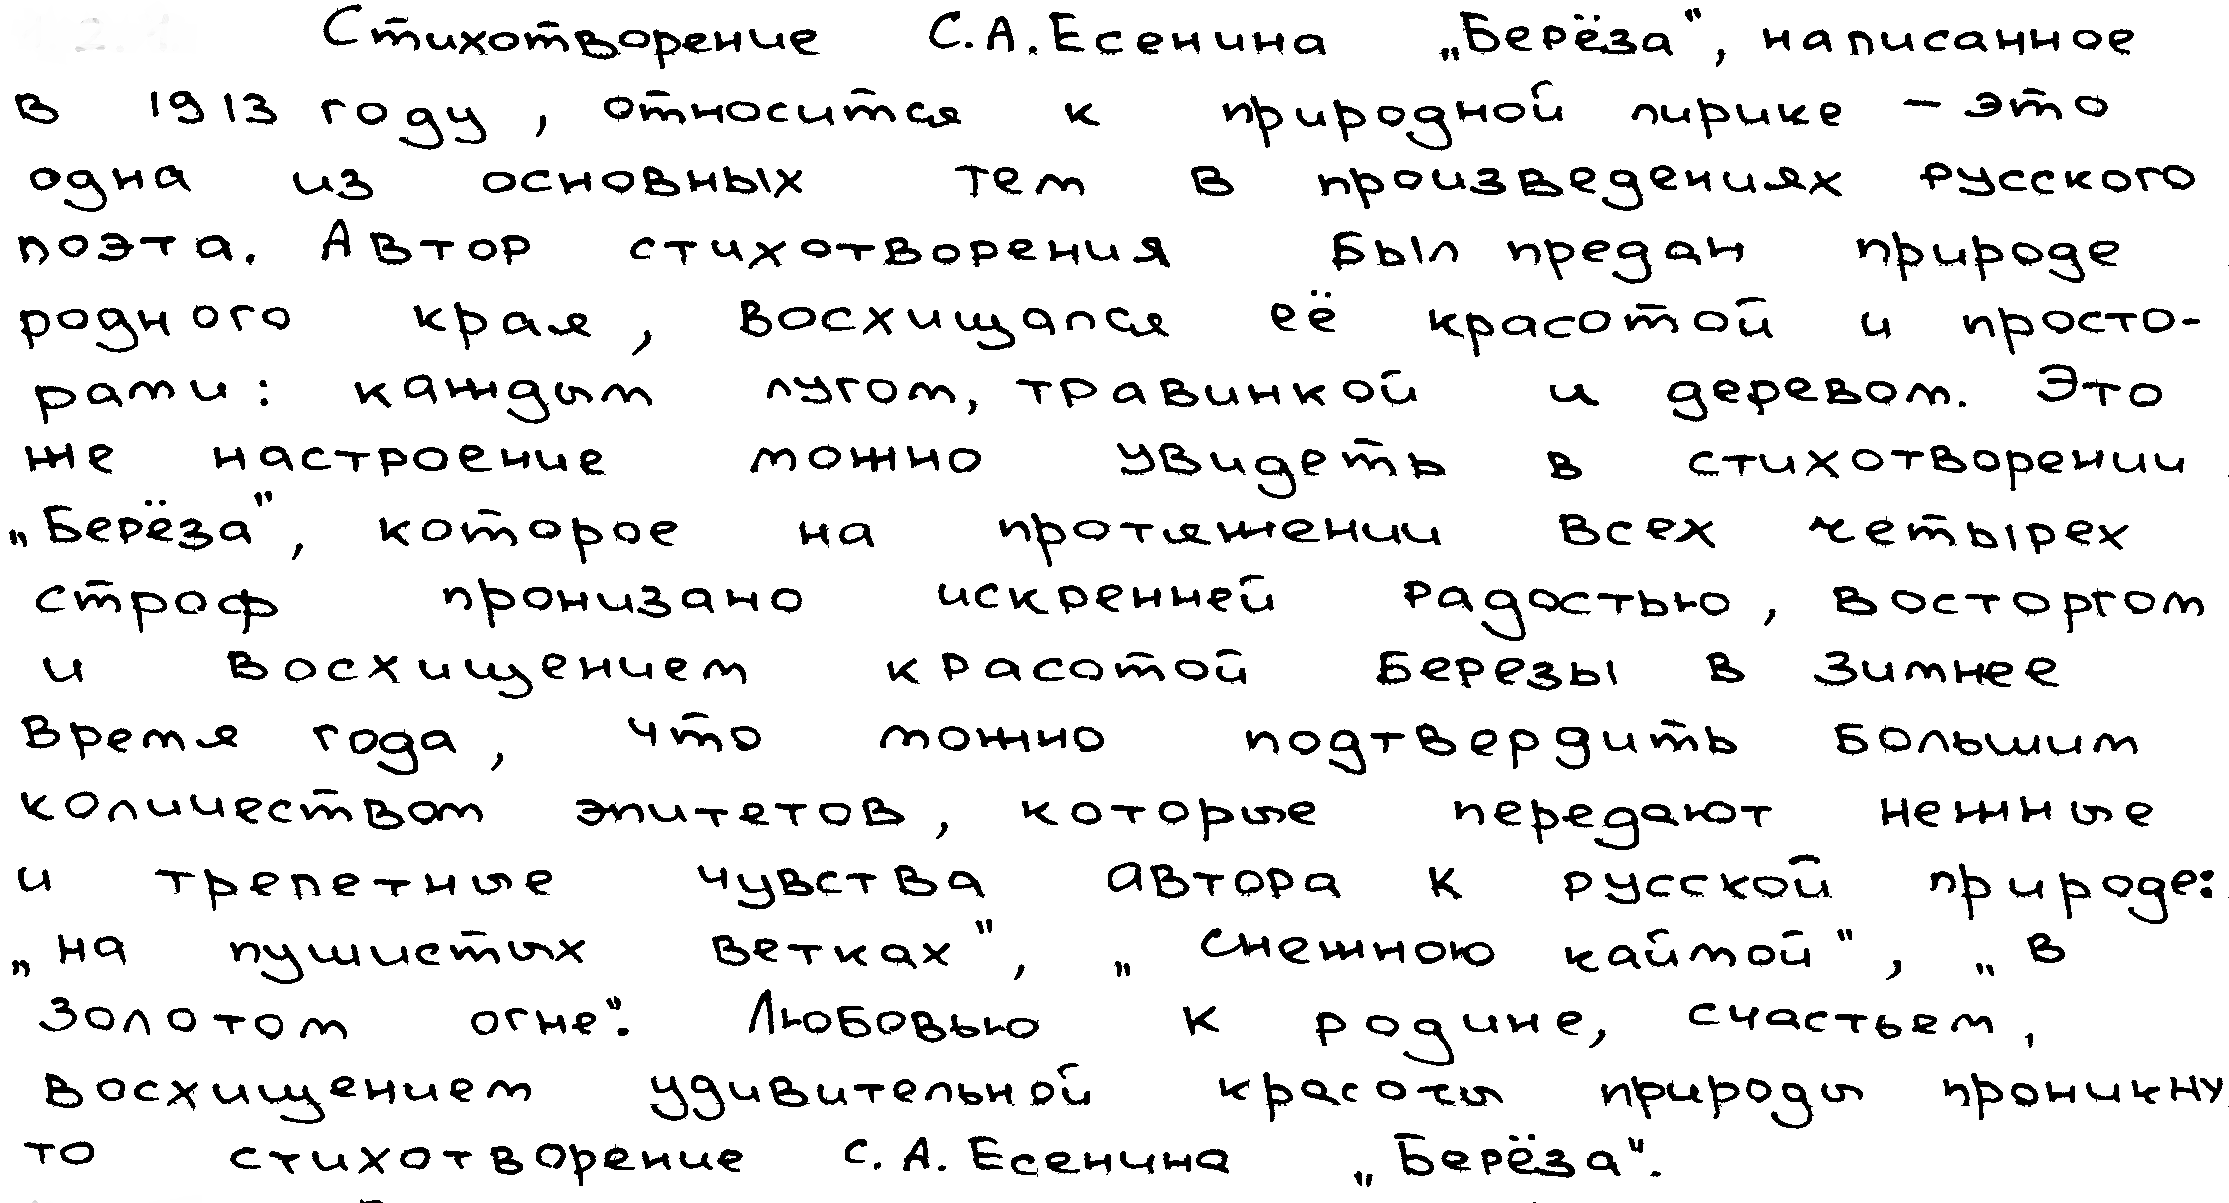 Стихотворение С.А.Есенина „Берёза", написанное
в 1913 году, относится к природной лирике – это
одна из основных тем в произведениях русского
поэта. Автор стихотворения был предан природе
родного края, восхищался её красотой и просто-
рами: каждым лугом, травинкой и деревом. Это
же настроение можно увидеть в стихотворении
„Берёза", которое на протяжении всех четырех
строф пронизано искренней радостью, восторгом
и восхищением красотой березы в зимнее
время года, что можно подтвердить большим
количеством эпитетов, которые передают нежные
и трепетные чувства автора к русской природе:
„на пушистых ветках", „снежною каймой", „в
золотом огне". Любовью к родине, счастьем,
восхищением удивительной красоты природы проникну
то стихотворение С.А.Есенина „Берёза".